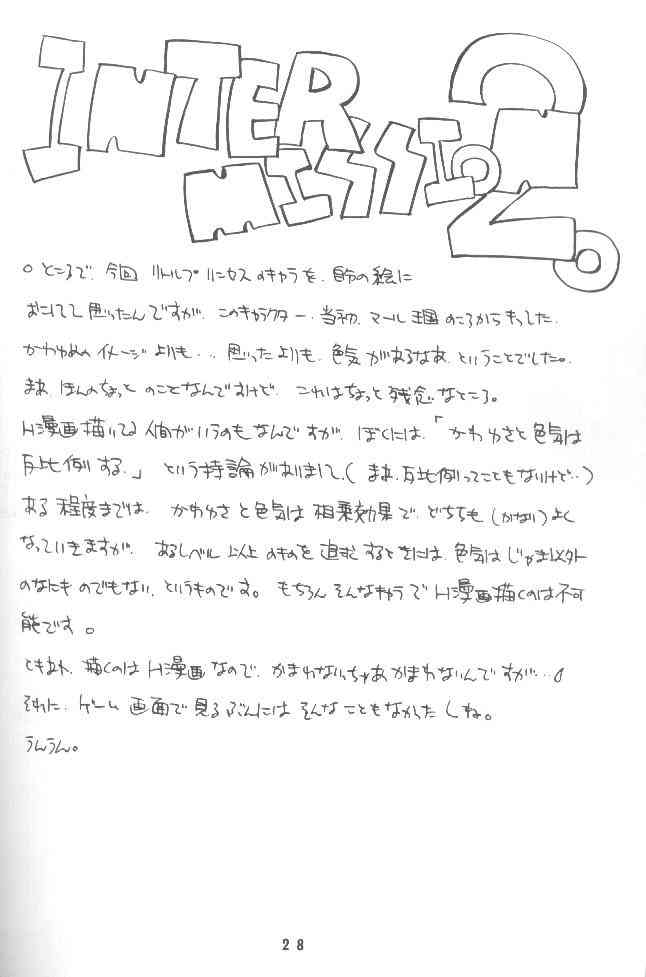 INTER
MISSION 2。
○ところで、今回 リトルプリンセスのキャラを、自分の絵に
おこしてて思ったんですが、このキャラクター、当初、マール王国のころからもってた、
かわゆめのイメージよりも、…、思ったよりも、色気があるなあ、ということでした。
まぁ、ほんのちょっとのことなんですけど、これはちょっと残念なところ。
H漫画描いてる人間がいうのもなんですが、ぼくには、「かわゆさと色気は
反比例する。」という持論がありまして、(まぁ、反比例ってこともないけど…)
ある程度までは、かわゆさと色気は相乗効果で、どちらも(かなり)よく
なっていきますが、あるレベル以上のものを追求するときには、色気はじゃま以外
のなにものでもない、というものです。もちろんそんなキャラでH漫画描くのは不可
能です。
ともあれ、描くのはH漫画なので、かまわないっちゃあかまわないんですが…。
それに、ゲーム画面で見るぶんにはそんなこともなかったしね。
うんうん。
28